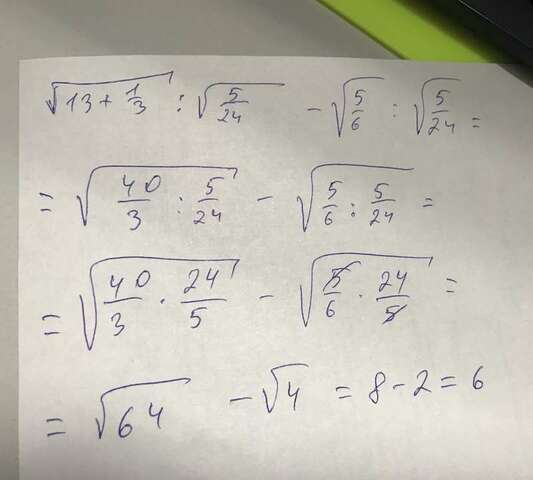 √(13 + 1/3) : √(5/24) - √(5/6) : √(5/24) =
= √(40/3 : 5/24) - √(5/6 : 5/24) =
= √(40/3 · 24/5) - √(5/6 · 24/5) =
= √64 - √4 = 8 - 2 = 6